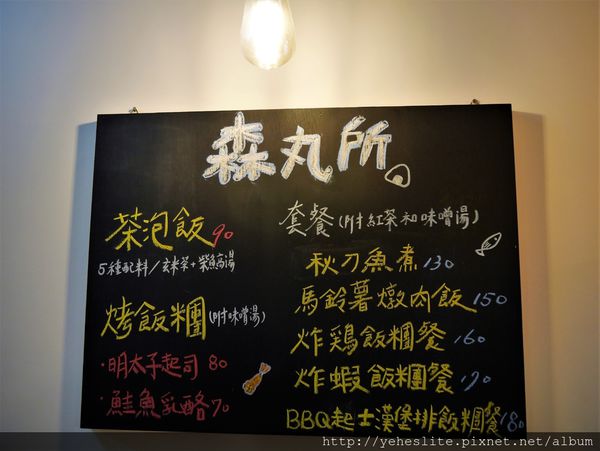 森丸所
茶泡飯 90
5種配料/玄米茶+柴魚高湯
烤飯糰(附味噌湯)
·明太子起司 80
·鮭魚乳酪 70
套餐(附紅茶和味噌湯)
秋刀魚煮 130
馬鈴薯燉肉飯 150
炸鶏飯糰餐 160
炸蝦飯糰餐 170
BBQ起士漢堡排飯糰餐 180
http://yeheslite.pixnet.net/album